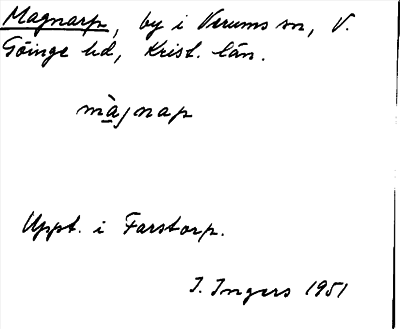 Magnarp, by i Verums sn, V.
Göinge hd, Krist. län.
màgnap
Uppt. i Farstorp.
I. Ingers 1951